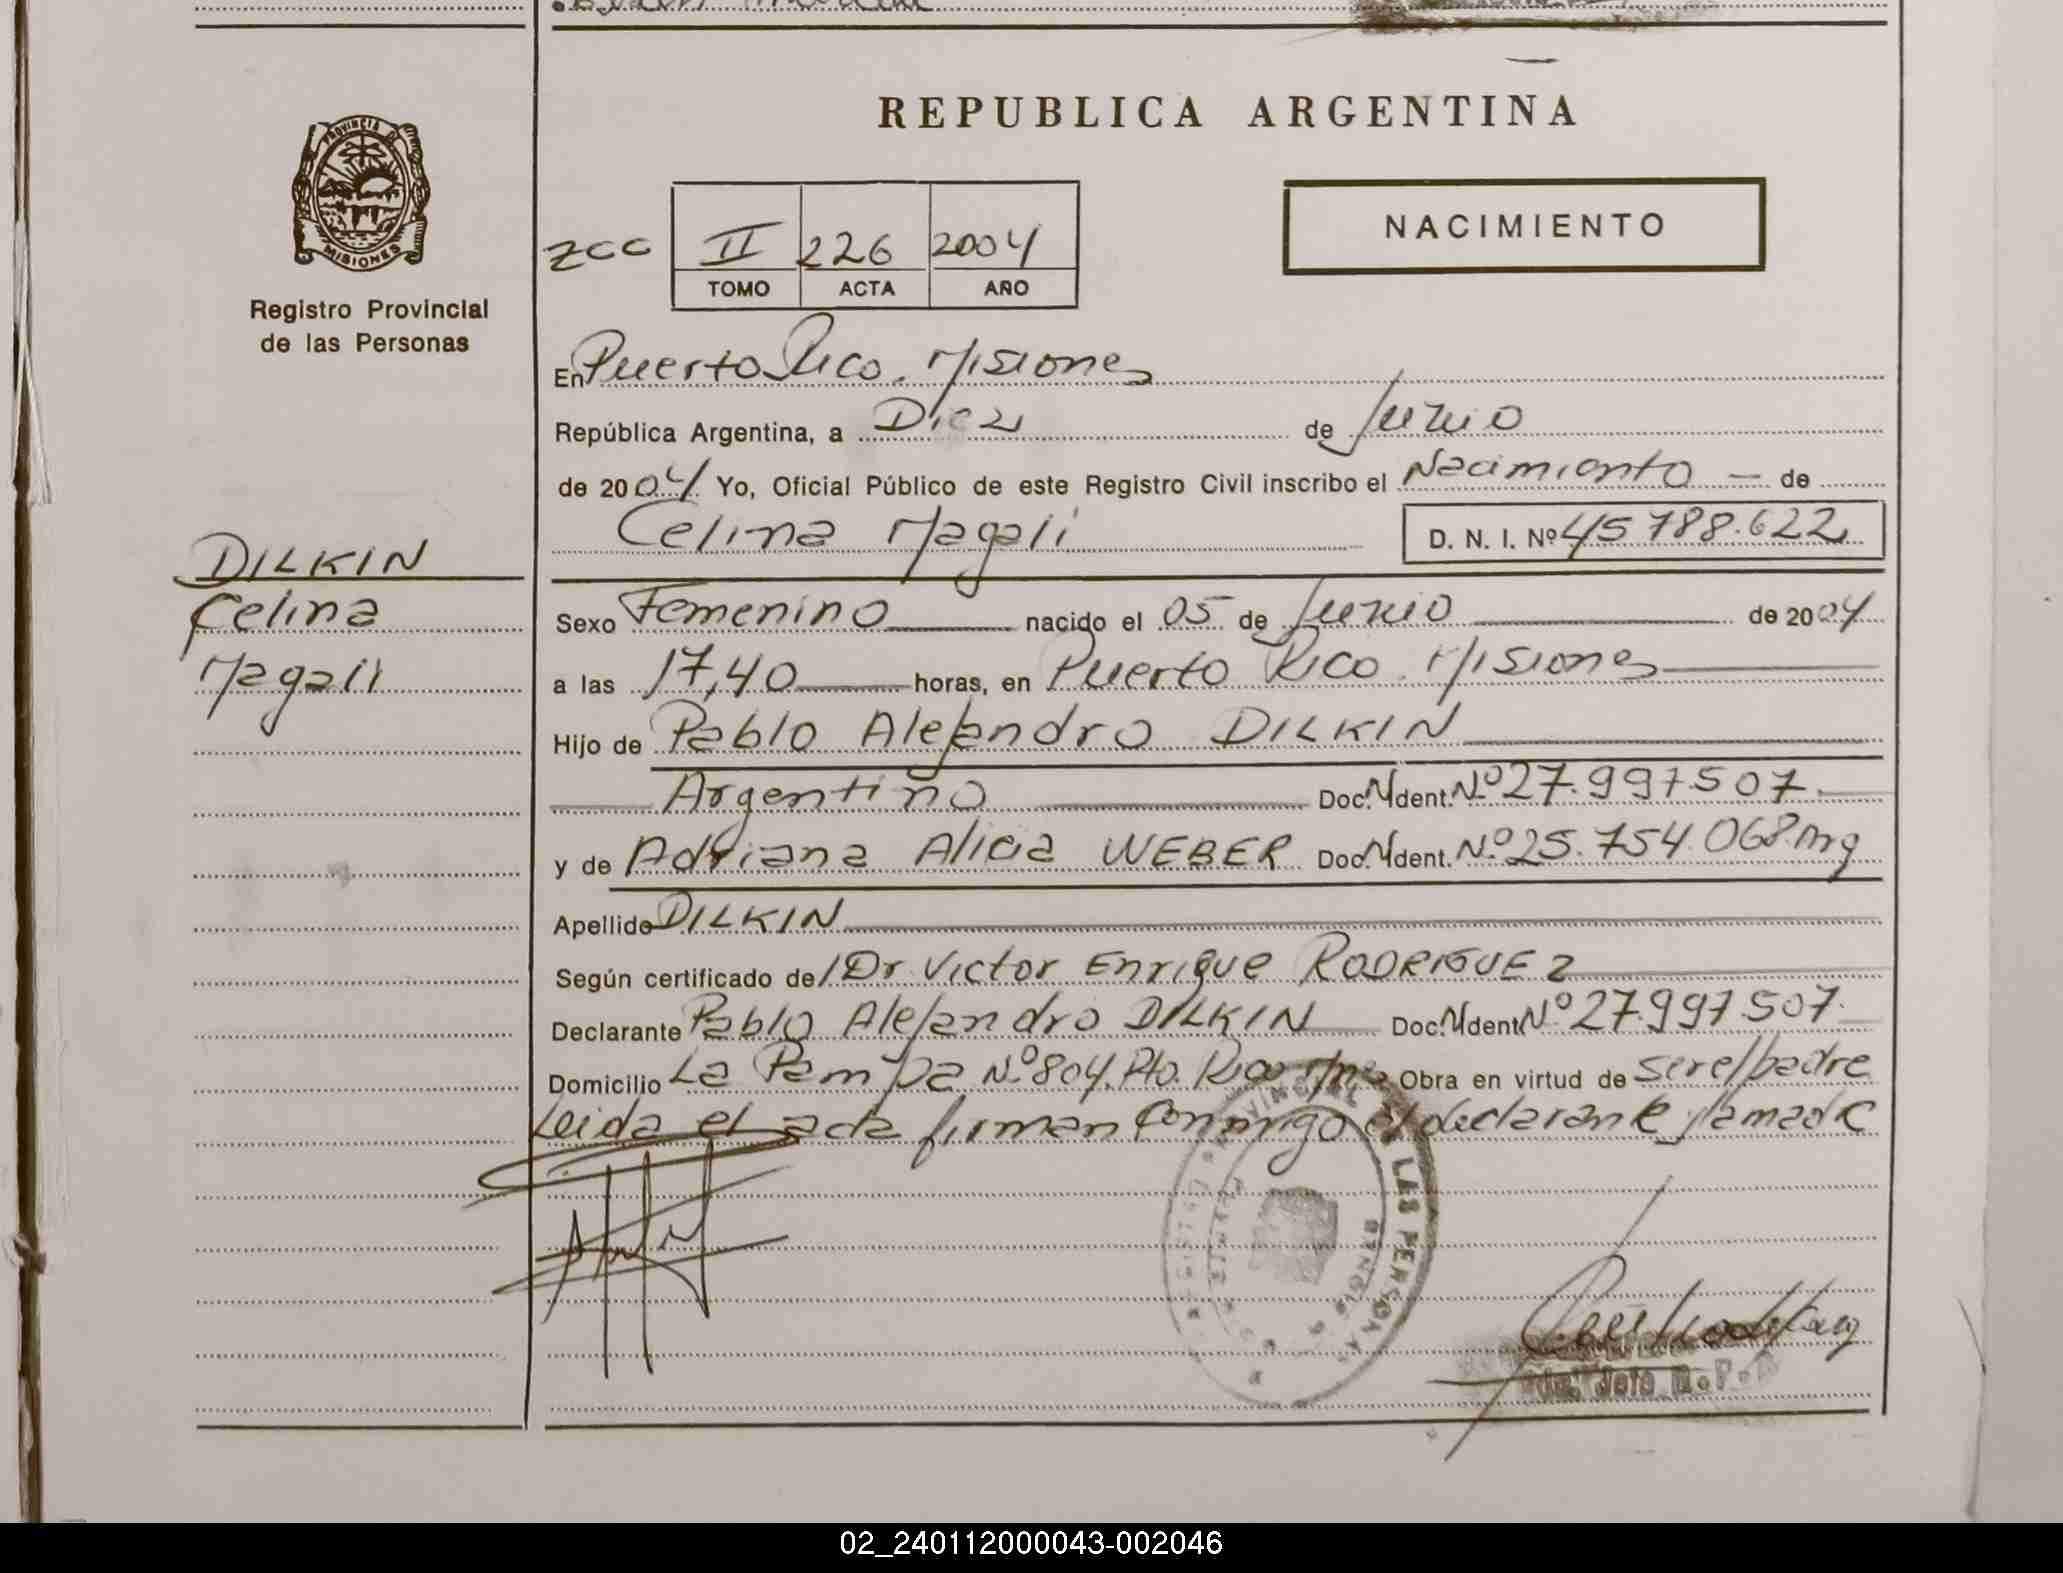 REPUBLICA ARGENTINA
PROVINCIA DE
MISIONES
Registro Provincial
de las Personas
zcc II 226 2004
TOMO ACTA AÑO
NACIMIENTO
En Puerto Rico. Misiones
República Argentina, a Diez de Junio
de 2004 Yo, Oficial Público de este Registro Civil inscribo el Nacimiento - de
Celina Magali D. N. I. Nº 45 788.622
DILKIN
Celina
Magali
Sexo Femenino nacido el 05 de Junio de 2004
a las 17,40 horas, en Puerto Rico. Misiones
Hijo de Pablo Alejandro DILKIN
Argentino Doc. N Ident. Nº 27.997.507.
y de Adriana Alicia WEBER Doc. N Ident. Nº 25.754.068. Arg
Apellido DILKIN
Según certificado de/ Dr Victor Enrique RODRIGUEZ
Declarante Pablo Alejandro DILKIN Doc. N Ident Nº 27.997.507.
Domicilio La Pampa Nº 804. Pto. Rico Mnes Obra en virtud de ser el padre
Leida el acta firman conmigo el declarante y la madre
REGISTRO PROVINCIAL DE LAS PERSONAS
MISIONES
Jefe R.P.
02_240112000043-002046